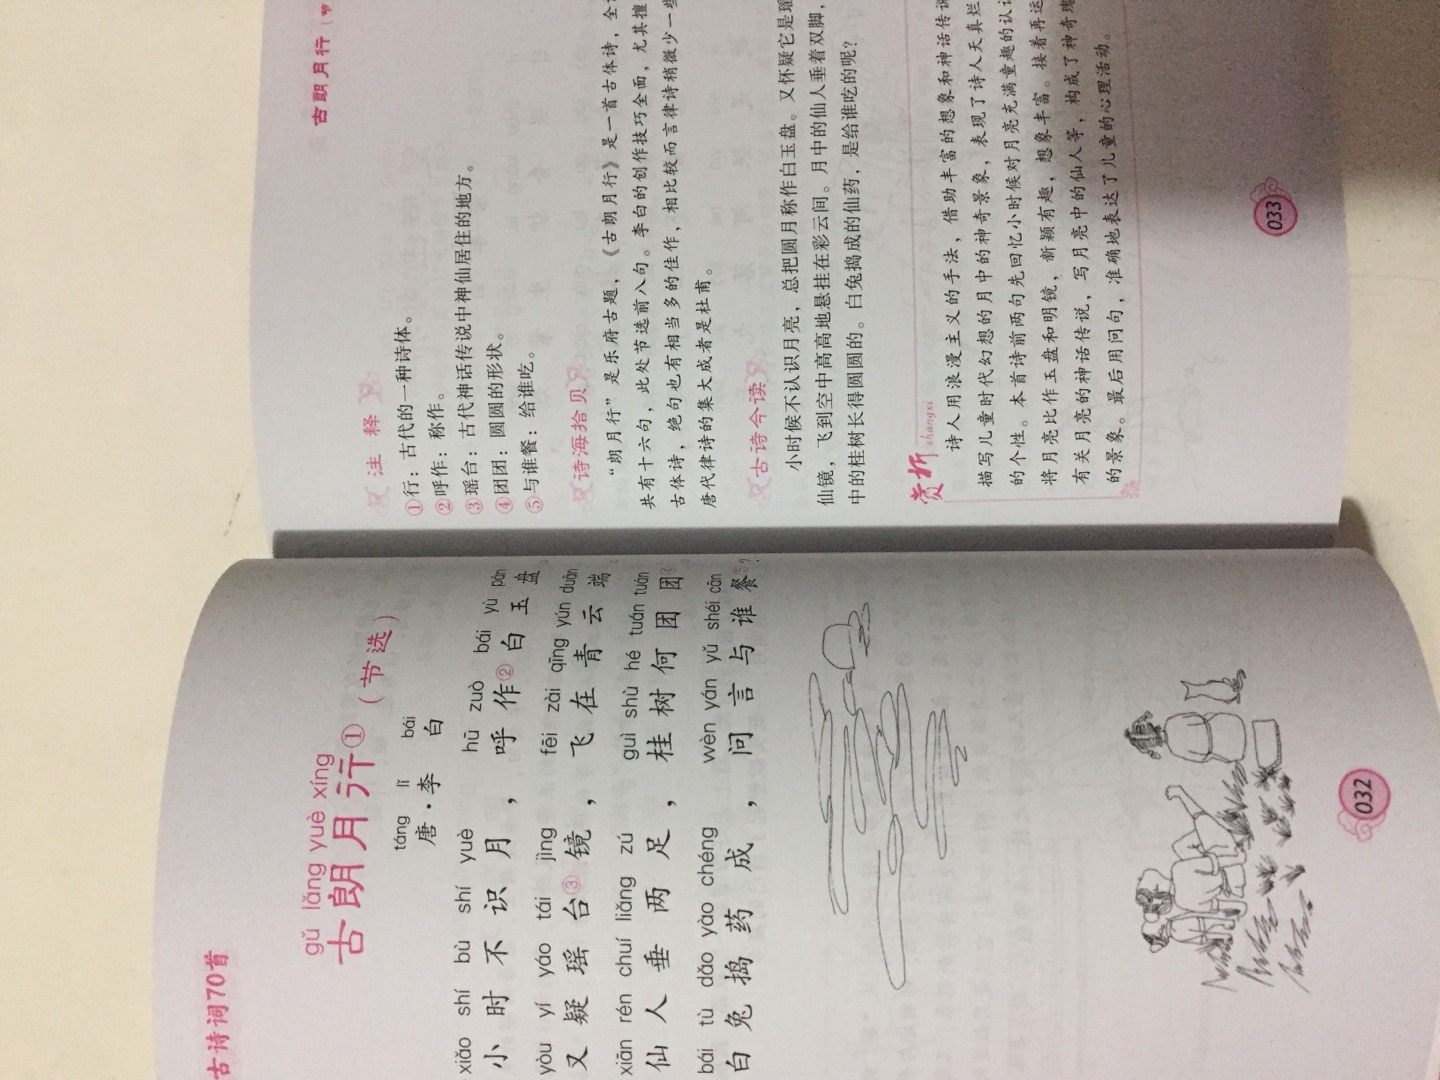 古诗词70首
gǔ lǎng yuè xíng
古朗月行①（节选）
táng lǐ bái
唐·李白
xiǎo shí bù shí yuè hū zuò bái yù pán
小时不识月，呼作②白玉盘
yòu yí yáo tái jìng fēi zài qīng yún duān
又疑瑶台③镜，飞在青云端
xiān rén chuí liǎng zú guì shù hé tuán tuán
仙人垂两足，桂树何团团
bái tù dǎo yào chéng wèn yán yǔ shéi cān
白兔捣药成，问言与谁餐
032
古朗月行（节
注释
①行：古代的一种诗体。
②呼作：称作。
③瑶台：古代神话传说中神仙居住的地方。
④团团：圆圆的形状。
⑤与谁餐：给谁吃。
诗海拾贝
“朗月行”是乐府古题，《古朗月行》是一首古体诗，全
共有十六句，此处节选前八句。李白的创作技巧全面，尤其擅
古体诗，绝句也有相当多的佳作，相比较而言律诗稍微少一些
唐代律诗的集大成者是杜甫。
古诗今读
小时候不认识月亮，总把圆月称作白玉盘。又怀疑它是瑶
仙镜，飞到空中高高地悬挂在彩云间。月中的仙人垂着双脚，
中的桂树长得圆圆的。白兔捣成的仙药，是给谁吃的呢？
赏析
shangxi
诗人用浪漫主义的手法，借助丰富的想象和神话传说
描写儿童时代幻想的月中的神奇景象，表现了诗人天真烂
的个性。本首诗前两句先回忆小时候对月亮充满童趣的认
将月亮比作玉盘和明镜，新颖有趣，想象丰富。接着再运
有关月亮的神话传说，写月亮中的仙人等，构成了神奇瑰
的景象。最后用问句，准确地表达了儿童的心理活动。
033